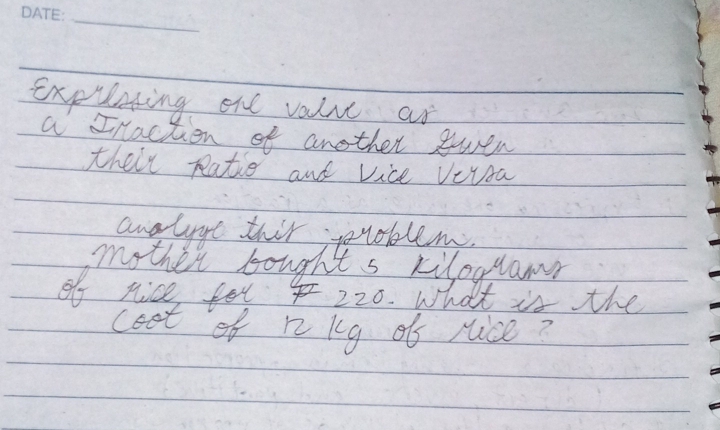 DATE:
Expressing one value as
a Fraction of another Given
their Ratio and Vice Versa
analyze this problem.
Mother bought 5 kilograms
of rice for ₱ 220. What is the
Cost of 12 kg of rice?